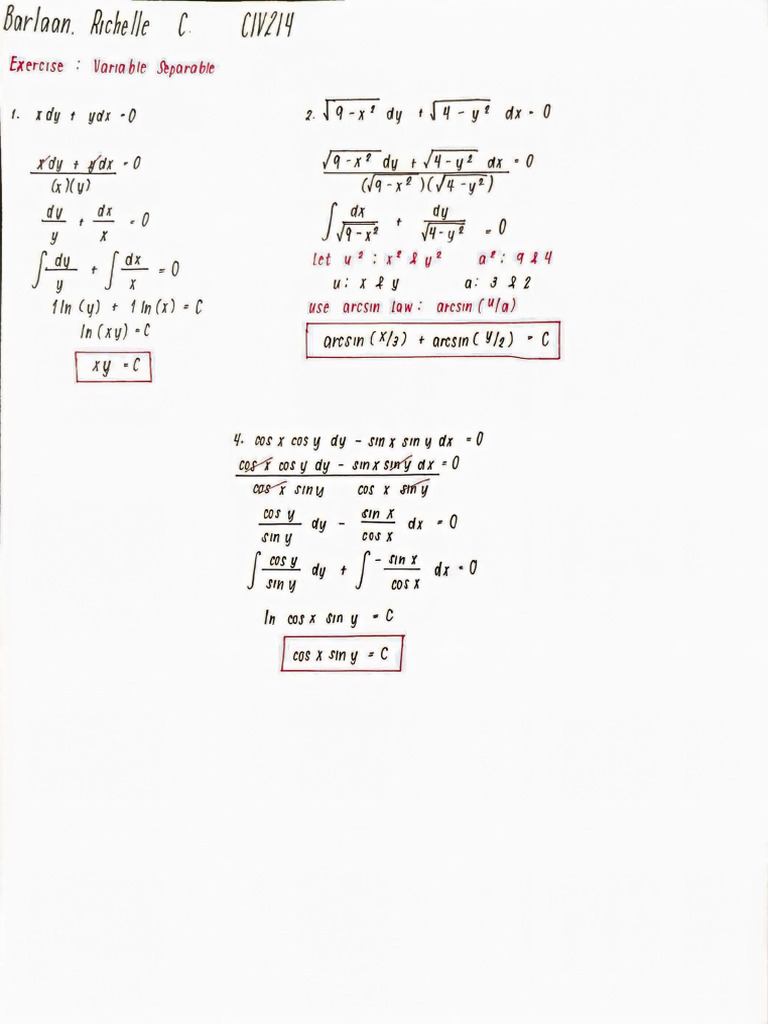 Barlaan, Richelle C. CIV214
Exercise : Variable Separable
1. xdy + ydx = 0
xdy + ydx = 0
(x)(y)
dy/y + dx/x = 0
∫ dy/y + ∫ dx/x = 0
1 ln (y) + 1 ln (x) = C
ln (xy) = C
xy = C
2. √9 - x² dy + √4 - y² dx = 0
√9 - x² dy + √4 - y² dx = 0
(√9 - x²)(√4 - y²)
∫ dx/√9 - x² + dy/√4 - y² = 0
Let u² : x² & y² a² : 9 & 4
u : x & y a : 3 & 2
use arcsin law : arcsin (u/a)
arcsin (x/3) + arcsin (y/2) = C
4. cos x cos y dy - sin x sin y dx = 0
cos x cos y dy - sin x sin y dx = 0
cos x sin y cos x sin y
cos y/sin y dy - sin x/cos x dx = 0
∫ cos y/sin y dy + ∫ - sin x/cos x dx = 0
ln cos x sin y = C
cos x sin y = C